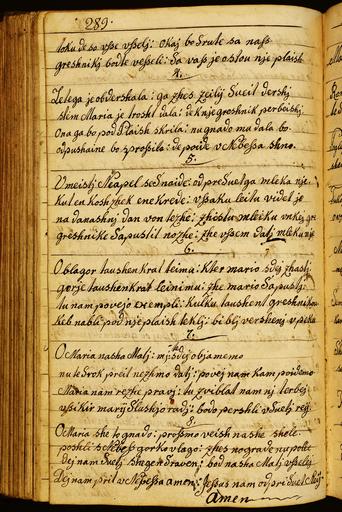 289.
toku de so vse vselj: okaj bo drute sa nass
greshnikj bodte vesseli: da vass je ostou nje plaish
4.
Letega je obdershala: ga zhes zeilij Sueil dershj
stem Maria je trosht dala: de k nje greshnik perbeishj.
Ona ga bo pod Plaish skrila: nu gnado mu dala bo.
odpushaine bo sprossila: de poide v Nebessa shno.
5.
V meistj Neapel se dnaide: od pre Suetga mleka nje.
kul en koshzhek ene krede: vssaku leitu videt je
na danashni dan von tezhe: zhistu mleiku
greshnike Sapustit nozhe: zhe vssem dalj mleku nje
6.
O blagor taushenkrat leimu: kter mario
gorje taushenkrat leinimu: zhe mario Sapustj:
tu nam povejo exempli: kulku taushent greshnikou
keb nabli pod nje plaish teklj: bi blj vershenj v peku
7.
O Maria nasha Matj: mj sdej objamemo
na te drok preit nezhmo datj: povej nam kam poidemo
Maria nam rezhe pravj: tu zviblat nam nj treba
vssikir marij Slushjo radj: bodo pershli v Suetj reij
8.
O Maria she to gnado: prossmo veish nashe shele
poshli s Nebess gorko vlago: zhes nograde nu polle
Dej nam Suetj shegen draven: bod nasha Matj vsselej
Dej nam prit v Nebessa amen: Jessus nam odpri Suet Raij
Amen